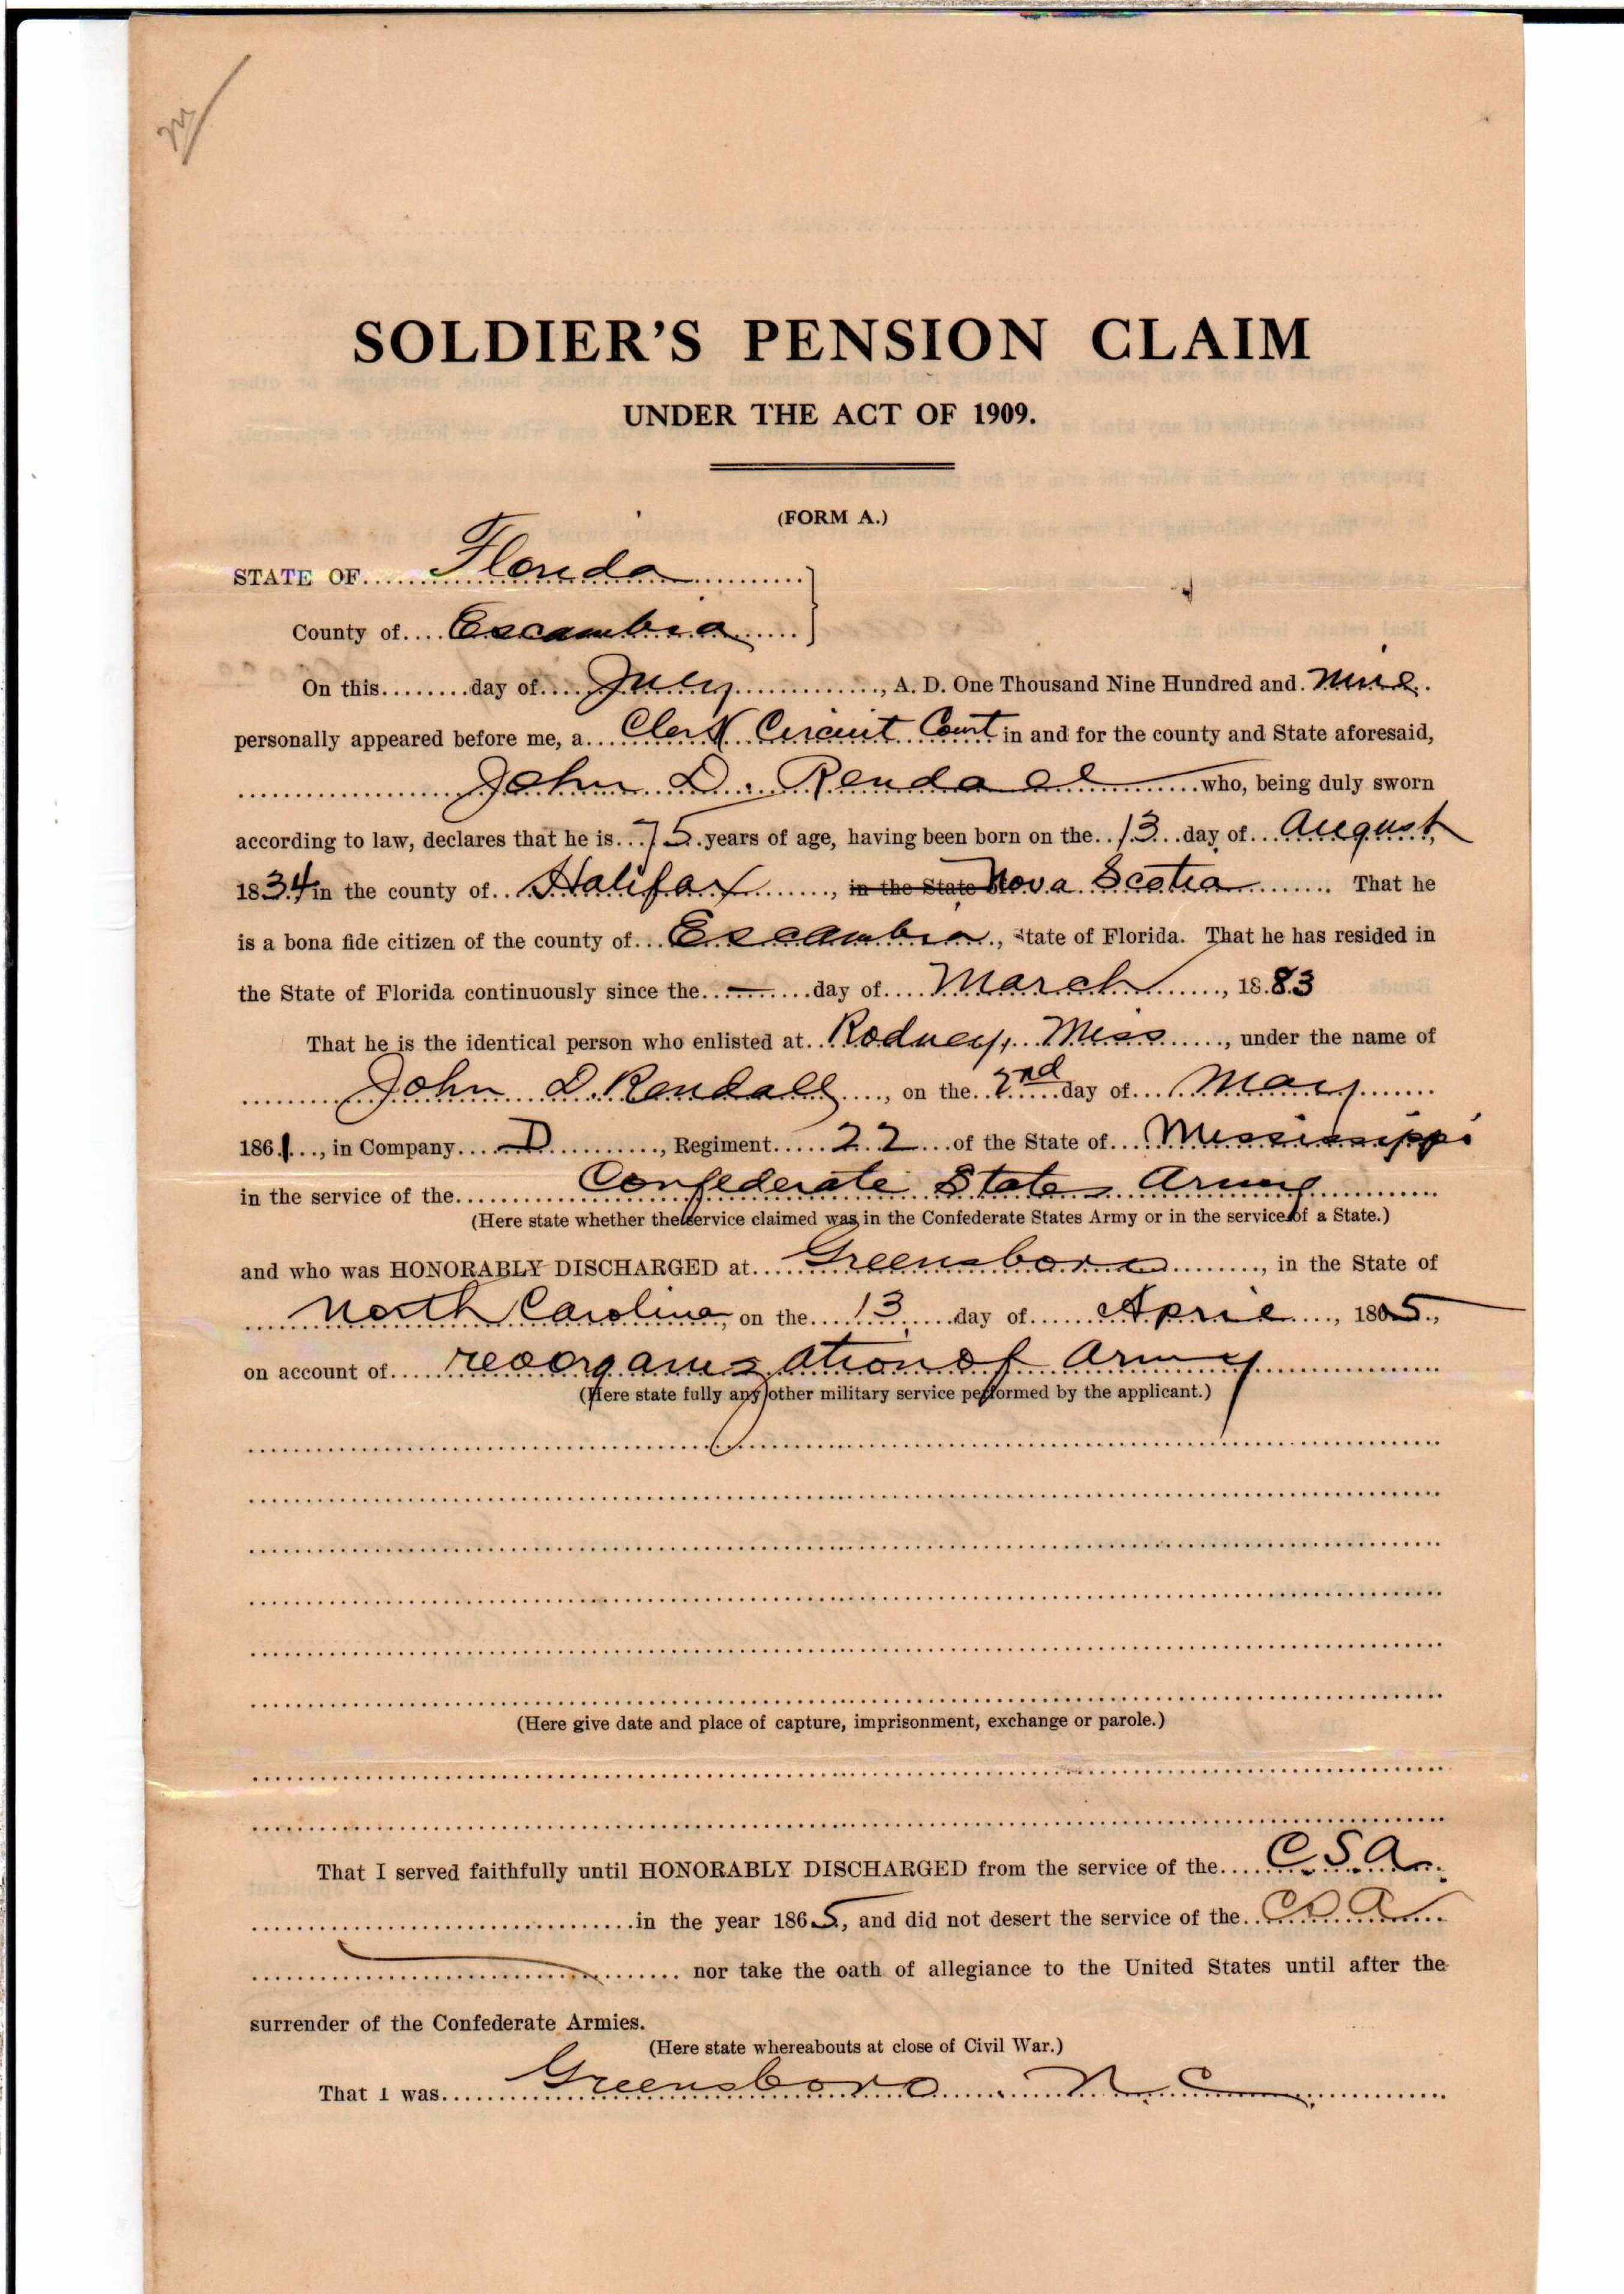 SOLDIER'S PENSION CLAIM
UNDER THE ACT OF 1909.
(FORM A.)
STATE OF Florida
County of Escambia
On this day of July, A. D. One Thousand Nine Hundred and Nine
personally appeared before me, a Clerk Circuit Court in and for the county and State aforesaid,
John D. Rendall who, being duly sworn
according to law, declares that he is 75 years of age, having been born on the 13 day of August,
1834 in the county of Halifax, in the State Nova Scotia. That he
is a bona fide citizen of the county of Escambia, State of Florida. That he has resided in
the State of Florida continuously since the — day of March, 1883
That he is the identical person who enlisted at Rodney, Miss, under the name of
John D. Rendall, on the 2nd day of May
1861, in Company D, Regiment 22 of the State of Mississippi
in the service of the Confederate States Army
(Here state whether the service claimed was in the Confederate States Army or in the service of a State.)
and who was HONORABLY DISCHARGED at Greensboro, in the State of
North Carolina, on the 13 day of April, 1865,
on account of reoorganization of Army
(Here state fully any other military service performed by the applicant.)
(Here give date and place of capture, imprisonment, exchange or parole.)
That I served faithfully until HONORABLY DISCHARGED from the service of the C. S. A.
in the year 1865, and did not desert the service of the C S A
nor take the oath of allegiance to the United States until after the
surrender of the Confederate Armies.
(Here state whereabouts at close of Civil War.)
That I was Greensboro N. C.